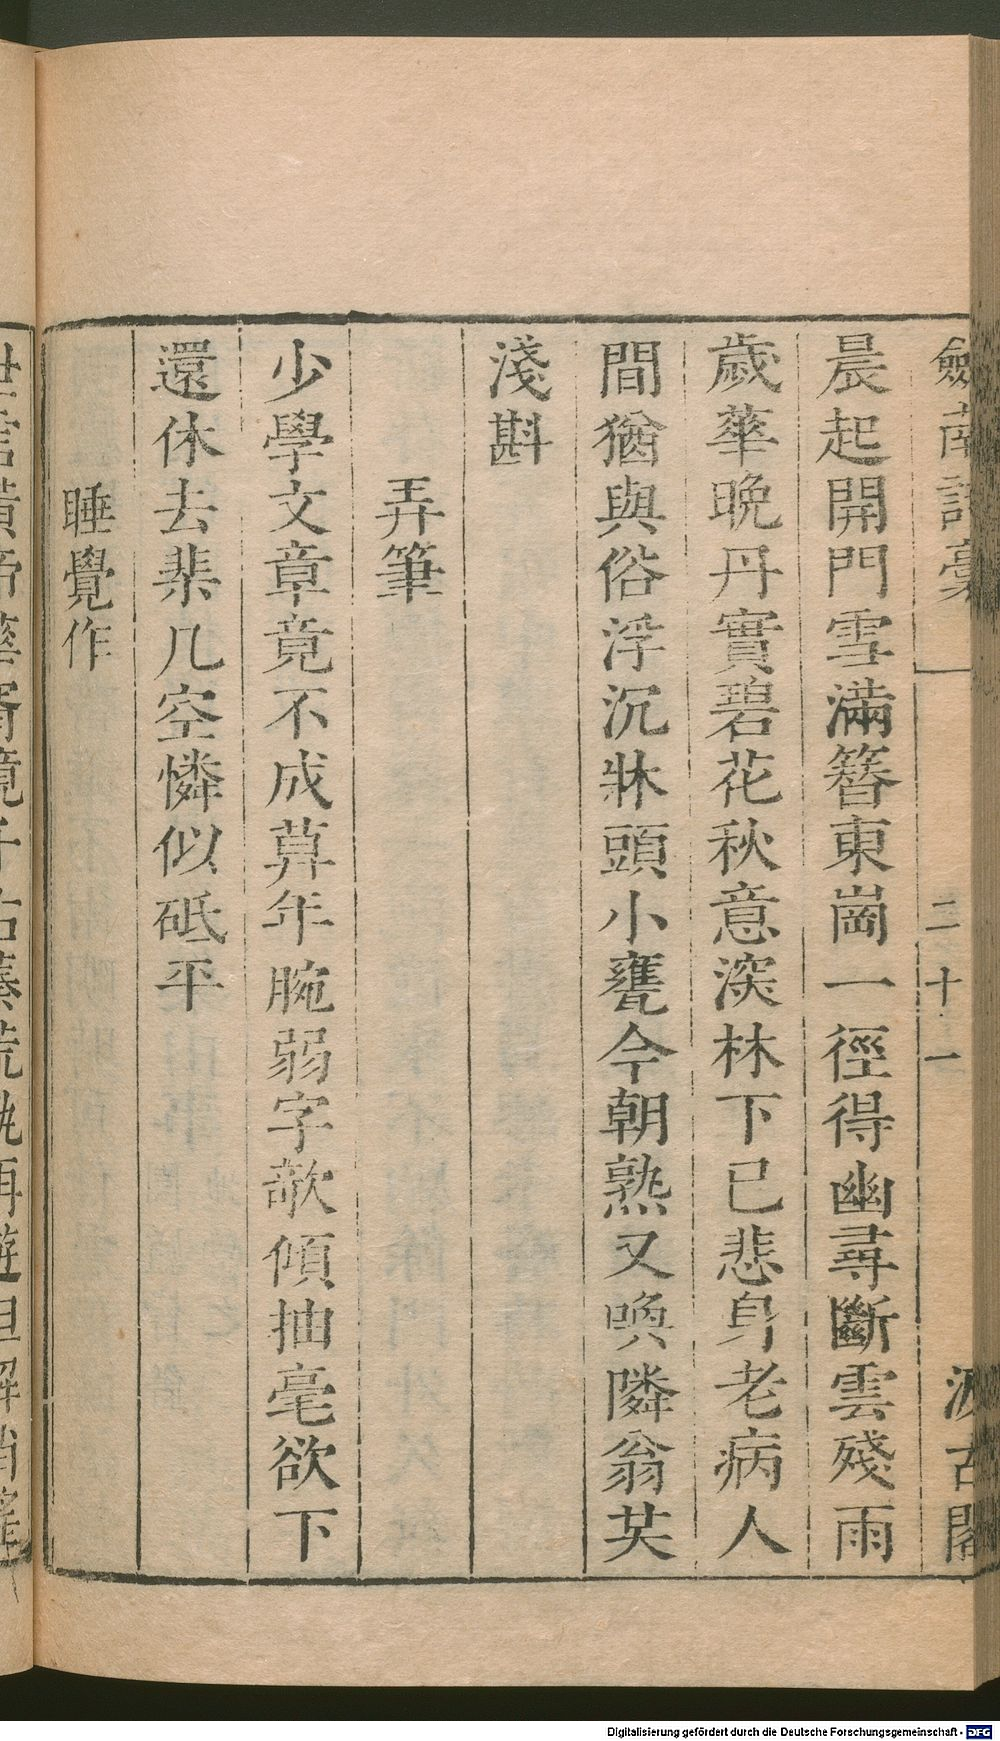 劔南詩稾 二十一 汲古閣
晨起開門雪滿簪東崗一徑得幽尋斷雲殘雨
歲華晚丹實碧花秋意深林下已悲身老病人
間猶與俗浮沉牀頭小甕今朝熟又喚隣翁共
淺斟
弄筆
少學文章竟不成莫年腕弱字欹傾抽毫欲下
還休去棐几空憐似砥平
睡覺作
Digitalisierung gefördert durch die Deutsche Forschungsgemeinschaft - DFG